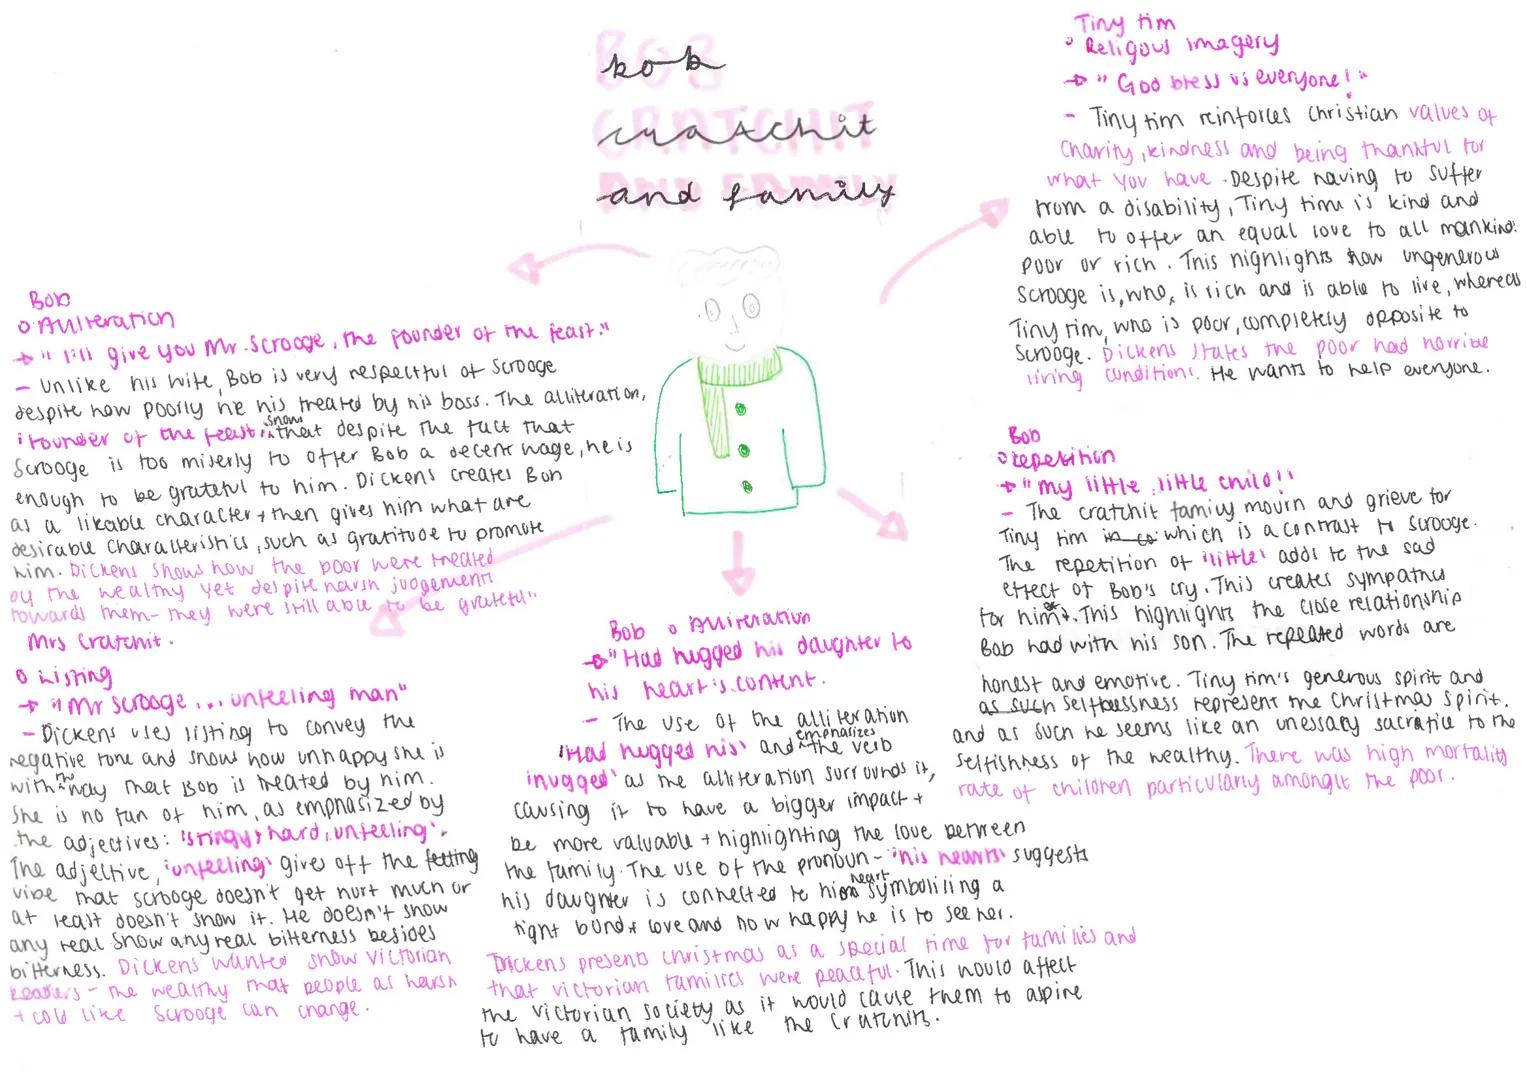 bob
cratchit
and family
Tiny tim
Religous imagery
→ "God bless us everyone!"
- Tiny tim reinforces Christian values of
charity, kindness and being thankful for
what you have. Despite having to suffer
from a disability, Tiny tim is kind and
able to offer an equal love to all mankind:
poor or rich. This highlights how ungenerous
Scrooge is, who, is rich and is able to live, whereas
Tiny tim, who is poor, completely opposite to
Scrooge. Dickens states the poor had horrible
living conditions. He wants to help everyone.
Bob
Alliteration
→ "I'll give you Mr Scrooge, the founder of the feast."
- Unlike his wife, Bob is very respectful of Scrooge
despite how poorly he his treated by his boss. The alliteration,
'founder of the feast' shows that despite the fact that
Scrooge is too miserly to offer Bob a decent wage, he is
enough to be grateful to him. Dickens creates Bob
as a likable character + then gives him what are
desirable characteristics, such as gratitude to promote
him. Dickens shows how the poor were treated
by the wealthy yet despite harsh judgement
towards them - they were still able to be grateful"
Mrs Cratchit.
Listing
→ "Mr Scrooge... unfeeling man"
- Dickens uses listing to convey the
negative tone and shows how unhappy she is
with the way that Bob is treated by him.
She is no fan of him, as emphasized by
the adjectives: 'stingy, hard, unfeeling'.
The adjective, 'unfeeling' gives off the fetting
vibe that scrooge doesn't get hurt much or
at least doesn't show it. He doesn't show
any real show any real bitterness besides
bitterness. Dickens wanted show Victorian
readers - the wealthy that people as harsh
+ cold like Scrooge can change.
Bob Alliteration
→ "Had hugged his daughter to
his heart's content.
- The use of the alliteration
'Had hugged his' and emphasizes the verb
'hugged' as the alliteration surrounds it,
causing it to have a bigger impact +
be more valuable + highlighting the love between
the family. The use of the pronoun - 'his hearts' suggests
his daughter is connected to his heart symbolising a
tight bond + love and how happy he is to see her.
Dickens presents christmas as a special time for families and
that victorian families were peaceful. This would affect
the victorian society as it would cause them to aspire
to have a family like the Cratchits.
Bob
repetition
→ "my little, little child!"
- The cratchit family mourn and grieve for
Tiny tim which is a contrast to Scrooge.
The repetition of 'little' adds to the sad
effect of Bob's cry. This creates sympathy
for him. This highlights the close relationship
Bob had with his son. The repeated words are
honest and emotive. Tiny tim's generous spirit and
as such selflessness represent the Christmas spirit.
and as such he seems like an unessary sacrafice to the
selfishness of the wealthy. There was high mortality
rate of children particularly amongst the poor.